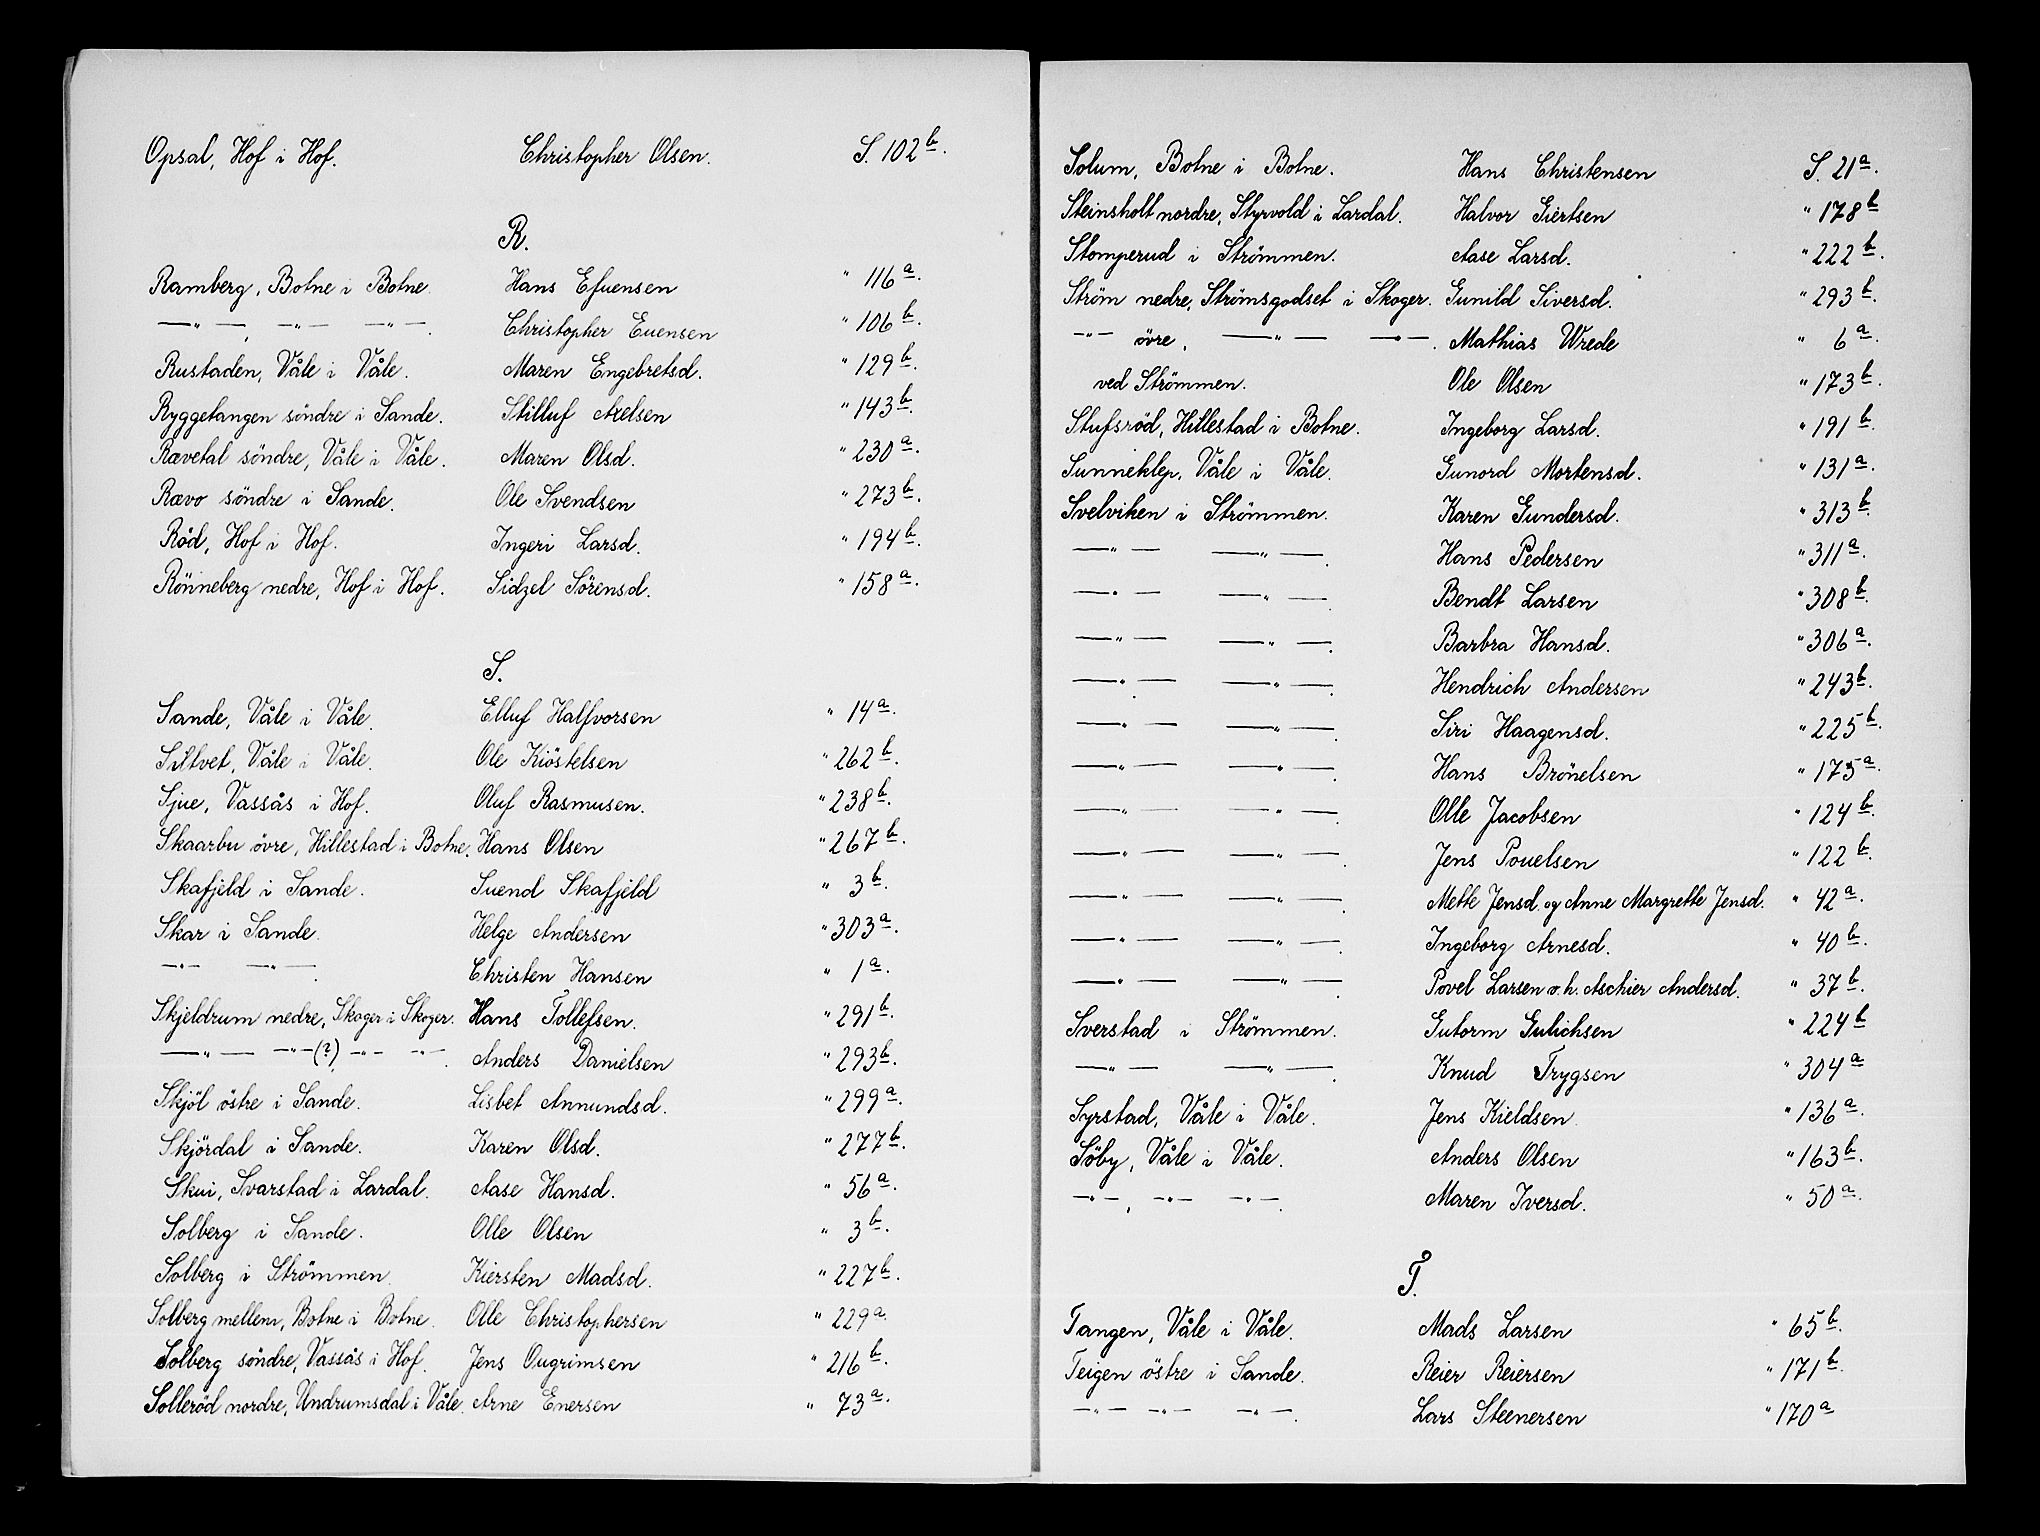 Opsal, Hof i Hof. Christopher Olsen. S. 102b.
R.
Ramberg, Botne i Botne. Hans Efuensen " 116a.
—"—, —"— —"—. Christopher Euensen " 106b.
Rustaden, Våle i Våle. Maren Engebretsd. " 129b.
Ryggetangen söndre i Sande. Stilluf Axelsen " 143b.
Rævetal söndre, Våle i Våle. Maren Olsd. " 230a.
Rævo söndre i Sande. Ole Svendsen " 273b.
Röd, Hof i Hof. Ingeri Larsd. " 194b.
Rönneberg nedre, Hof i Hof. Sidzel Sörensd. " 158a.
S.
Sande, Våle i Våle. Elluf Halfvorsen " 14a.
Siltvet, Våle i Våle. Ole Kiöstelsen " 262b.
Sjue, Vassås i Hof. Oluf Rasmusen. " 238b.
Skaarbu övre, Hillestad i Botne. Hans Olsen " 267b.
Skafjeld i Sande. Suend Skafjeld " 3b.
Skar i Sande. Helge Andersen " 303a.
—"— —"—. Christen Hansen " 1a.
Skjeldrum nedre, Skoger i Skoger. Hans Tollefsen. " 291b.
—"— —"—(?), —"— —"—. Anders Danielsen " 293b.
Skjöl östre i Sande. Lisbet Annundsd. " 299a.
Skjördal i Sande. Karen Olsd. " 277b.
Skui, Svarstad i Lardal. Aase Hansd. " 56a.
Solberg i Sande. Olle Olsen " 3b.
Solberg i Strömmen. Kiersten Madsd. " 227b.
Solberg mellem, Botne i Botne. Olle Christophersen " 229a.
Solberg söndre, Vassås i Hof. Jens Ougrimsen " 216b.
Solleröd nordre, Undrumsdal i Våle. Arne Enersen " 73a.
Solum, Botne i Botne. Hans Christensen S. 21a.
Steinsholt nordre, Styrvold i Lardal. Halvor Giertsen " 178b
Stomperud i Strömmen. Aase Larsd. " 222b.
Ström nedre, Strömsgodset i Skoger. Gunild Siversd. " 293b.
—"— övre, —"— —"—. Mathias Wrede " 6a.
ved Strömmen. Ole Olsen " 173b.
Stufsröd, Hillestad i Botne. Ingeborg Larsd. " 191b.
Sunneklep, Våle i Våle. Gunord Mortensd. " 131a.
Svelviken i Strömmen. Karen Gundersd. " 313b.
—"— —"—. Hans Pedersen " 311a.
—"— —"—. Bendt Larsen " 308b.
—"— —"—. Barbra Hansd. " 306a.
—"— —"—. Hendrich Andersen " 243b.
—"— —"—. Siri Haagensd. " 225b.
—"— —"—. Hans Brönelsen " 175a.
—"— —"—. Olle Jacobsen " 124b.
—"— —"—. Jens Pouelsen " 122b.
—"— —"—. Mette Jensd. og Anne Margrette Jensd. " 42a.
—"— —"—. Ingeborg Arnesd. " 40b.
—"— —"—. Povel Larsen o.h. Aschier Andersd. " 37b.
Sverstad i Strömmen. Gutorm Gulichsen " 224b
—"— —"—. Knud Trygsen " 304a
Syrstad, Våle i Våle. Jens Kieldsen " 136a.
Söby, Våle i Våle. Anders Olsen " 163b.
—"—, —"— —"—. Maren Iversd. " 50a.
T.
Tangen, Våle i Våle. Mads Larsen " 65b.
Teigen östre i Sande. Reier Reiersen " 171b.
—"— —"— —"—. Lars Steenersen " 170a